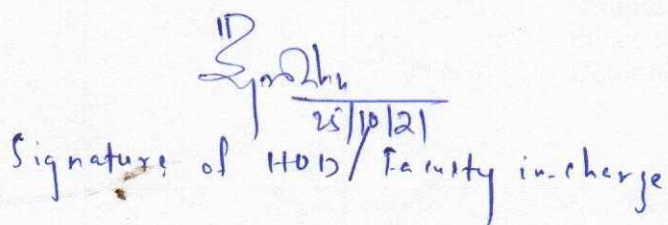 25/10/21
Signature of HOD/Faculty in-charge